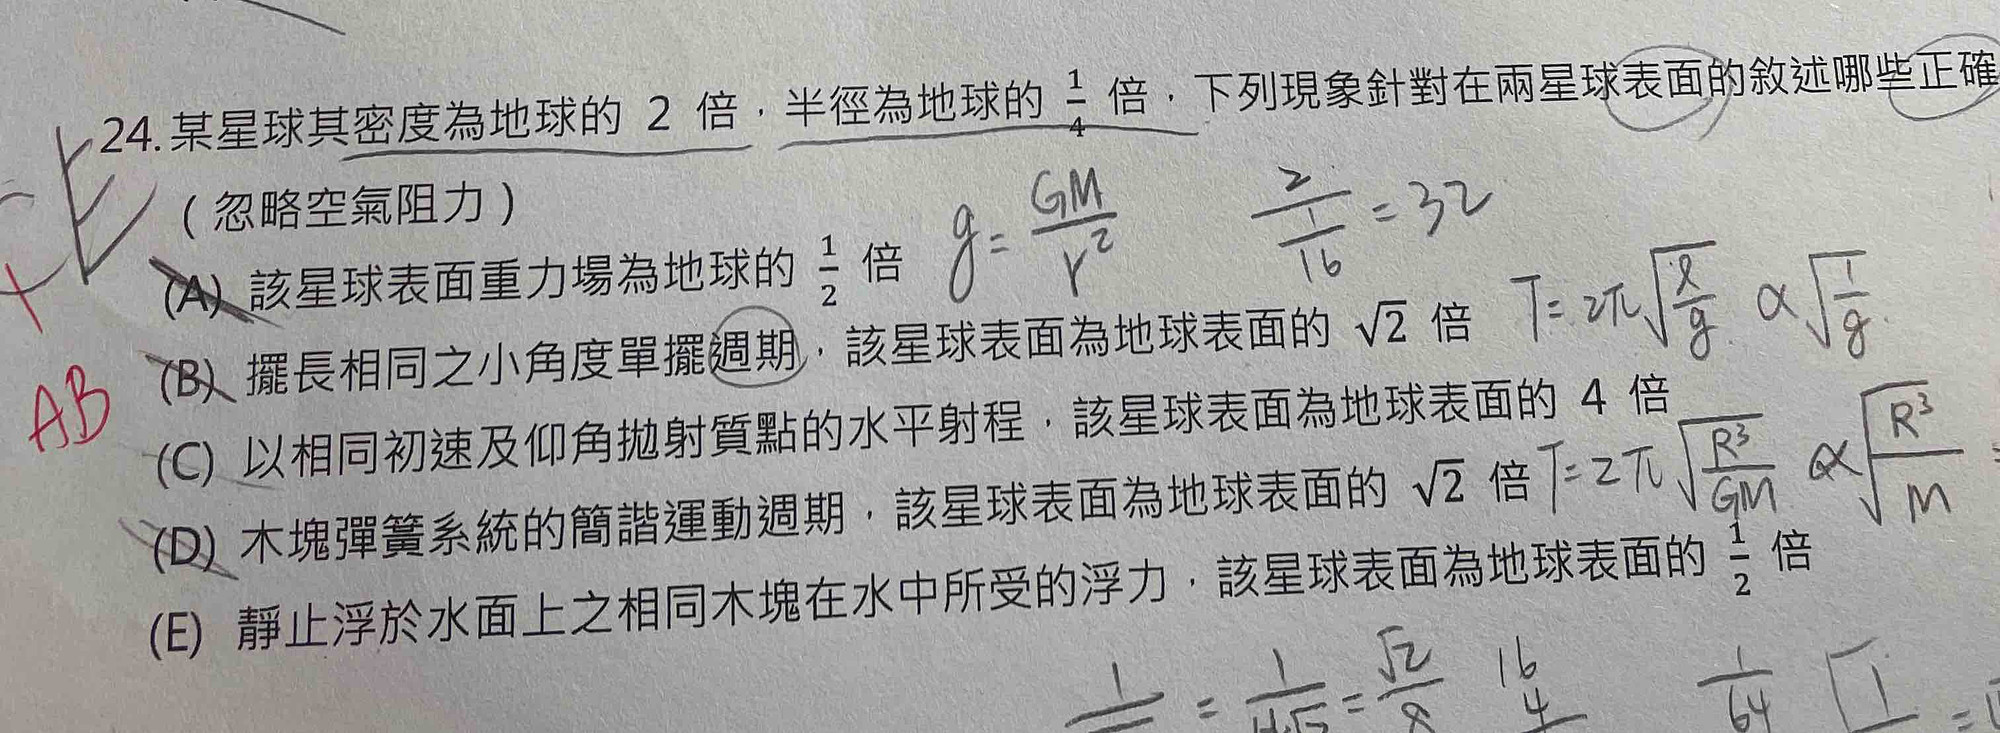 24. 某星球其密度為地球的 2 倍，半徑為地球的 1/4 倍，下列現象針對在兩星球表面的敘述哪些正確
（忽略空氣阻力）
g = GM/r² 2/(1/16) = 32
(A) 該星球表面重力場為地球的 1/2 倍
T = 2π√(ℓ/g) ∝ √(1/g)
(B) 擺長相同之小角度單擺週期，該星球表面為地球表面的 √2 倍
AB
(C) 以相同初速及仰角拋射質點的水平射程，該星球表面為地球表面的 4 倍
(D) 木塊彈簧系統的簡諧運動週期，該星球表面為地球表面的 √2 倍
T = 2π√(R³/GM) ∝ √(R³/M)
(E) 靜止浮於水面上之相同木塊在水中所受的浮力，該星球表面為地球表面的 1/2 倍
= = √2/8 16 4 1/64